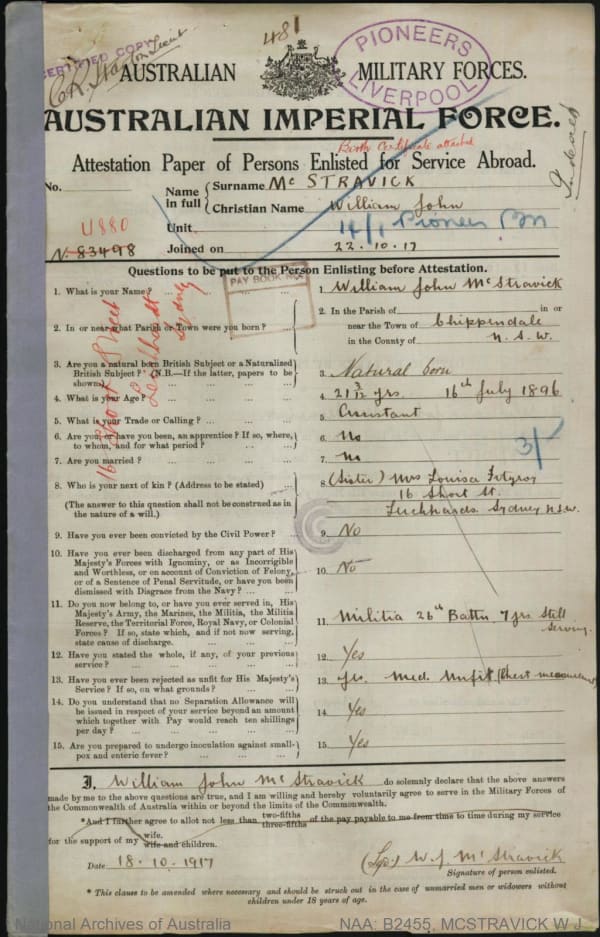 481
CERTIFIED COPY
PIONEERS
LIVERPOOL
AUSTRALIAN MILITARY FORCES.
AUSTRALIAN IMPERIAL FORCE.
Birth Certificate attached
Attestation Paper of Persons Enlisted for Service Abroad.
Indexed
No. Name in full Surname Mc STRAVICK
Christian Name William John
4880
Unit 14/1 Pioneer Bn
N. 83498 Joined on 22.10.17
Questions to be put to the Person Enlisting before Attestation.
PAY BOOK
16 Short Street
Leichhardt
Sydney
1. What is your Name? 1. William John McStravick
2. In or near what Parish or Town were you born? 2. In the Parish of in or
near the Town of Chippendale
in the County of N.S.W.
3. Are you a natural born British Subject or a Naturalized
British Subject? (N.B.—If the latter, papers to be
shown) 3. Natural born
4. What is your Age? 4. 21 3/12 yrs. 16th July 1896
5. What is your Trade or Calling? 5.
6. Are you, or have you been, an apprentice? If so, where,
to whom, and for what period? 6. No
3/-
7. Are you married? 7. No
8. Who is your next of kin? (Address to be stated) 8. (Sister) Mrs Louisa Fitzroy
16 Short St.
(The answer to this question shall not be construed as in
the nature of a will.) Leichhardt Sydney N.S.W.
9. Have you ever been convicted by the Civil Power? 9. No
10. Have you ever been discharged from any part of His
Majesty's Forces with Ignominy, or as Incorrigible
and Worthless, or on account of Conviction of Felony,
or of a Sentence of Penal Servitude, or have you been
dismissed with Disgrace from the Navy? 10. No
11. Do you now belong to, or have you ever served in, His
Majesty's Army, the Marines, the Militia, the Militia
Reserve, the Territorial Force, Royal Navy, or Colonial
Forces? If so, state which, and if not now serving,
state cause of discharge. 11. Militia 26th Battn. 7 yrs. Still
serving
12. Have you stated the whole, if any, of your previous
service? 12. Yes
13. Have you ever been rejected as unfit for His Majesty's
Service? If so, on what grounds? 13. Yes. Med. Unfit (Chest measurement)
14. Do you understand that no Separation Allowance will
be issued in respect of your service beyond an amount
which together with Pay would reach ten shillings
per day? 14. Yes
15. Are you prepared to undergo inoculation against small-
pox and enteric fever? 15. Yes
I, William John McStravick do solemnly declare that the above answers
made by me to the above questions are true, and I am willing and hereby voluntarily agree to serve in the Military Forces of
the Commonwealth of Australia within or beyond the limits of the Commonwealth.
*And I further agree to allot not less than two-fifths three-fifths of the pay payable to me from time to time during my service
for the support of my wife. wife and children.
Date 18.10.1917 (Sgd) W. J. McStravick
Signature of person enlisted.
* This clause to be amended where necessary and should be struck out in the case of unmarried men or widowers without
children under 18 years of age.
National Archives of Australia NAA: B2455, MCSTRAVICK W J